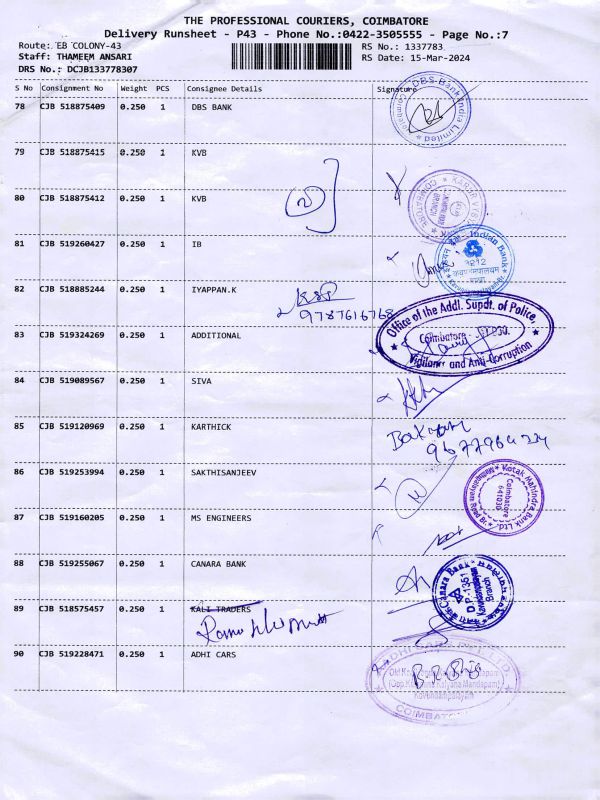 THE PROFESSIONAL COURIERS, COIMBATORE
Delivery Runsheet - P43 - Phone No.:0422-3505555 - Page No.:7
Route: EB COLONY-43 RS No.: 1337783
Staff: THAMEEM ANSARI RS Date: 15-Mar-2024
DRS No.: DCJB133778307
S No Consignment No Weight PCS Consignee Details Signature
78 CJB 518875409 0.250 1 DBS BANK
DBS Bank India Limited
79 CJB 518875415 0.250 1 KVB
80 CJB 518875412 0.250 1 KVB
81 CJB 519260427 0.250 1 IB
Indian Bank
82 CJB 518885244 0.250 1 IYAPPAN.K
9787616768
83 CJB 519324269 0.250 1 ADDITIONAL
Office of the Addl. Supdt. of Police,
Coimbatore
Vigilance and Anti-Corruption
84 CJB 519089567 0.250 1 SIVA
85 CJB 519120969 0.250 1 KARTHICK
86 CJB 519253994 0.250 1 SAKTHISANJEEV
Kotak Mahindra Bank Ltd.
Coimbatore
641030
87 CJB 519160205 0.250 1 MS ENGINEERS
88 CJB 519255067 0.250 1 CANARA BANK
Canara Bank
D.P.1351
Branch
89 CJB 518575457 0.250 1 KALI TRADERS
90 CJB 519228471 0.250 1 ADHI CARS
Kalyana Mandapam)
Kavundampalayam
COIMBATORE